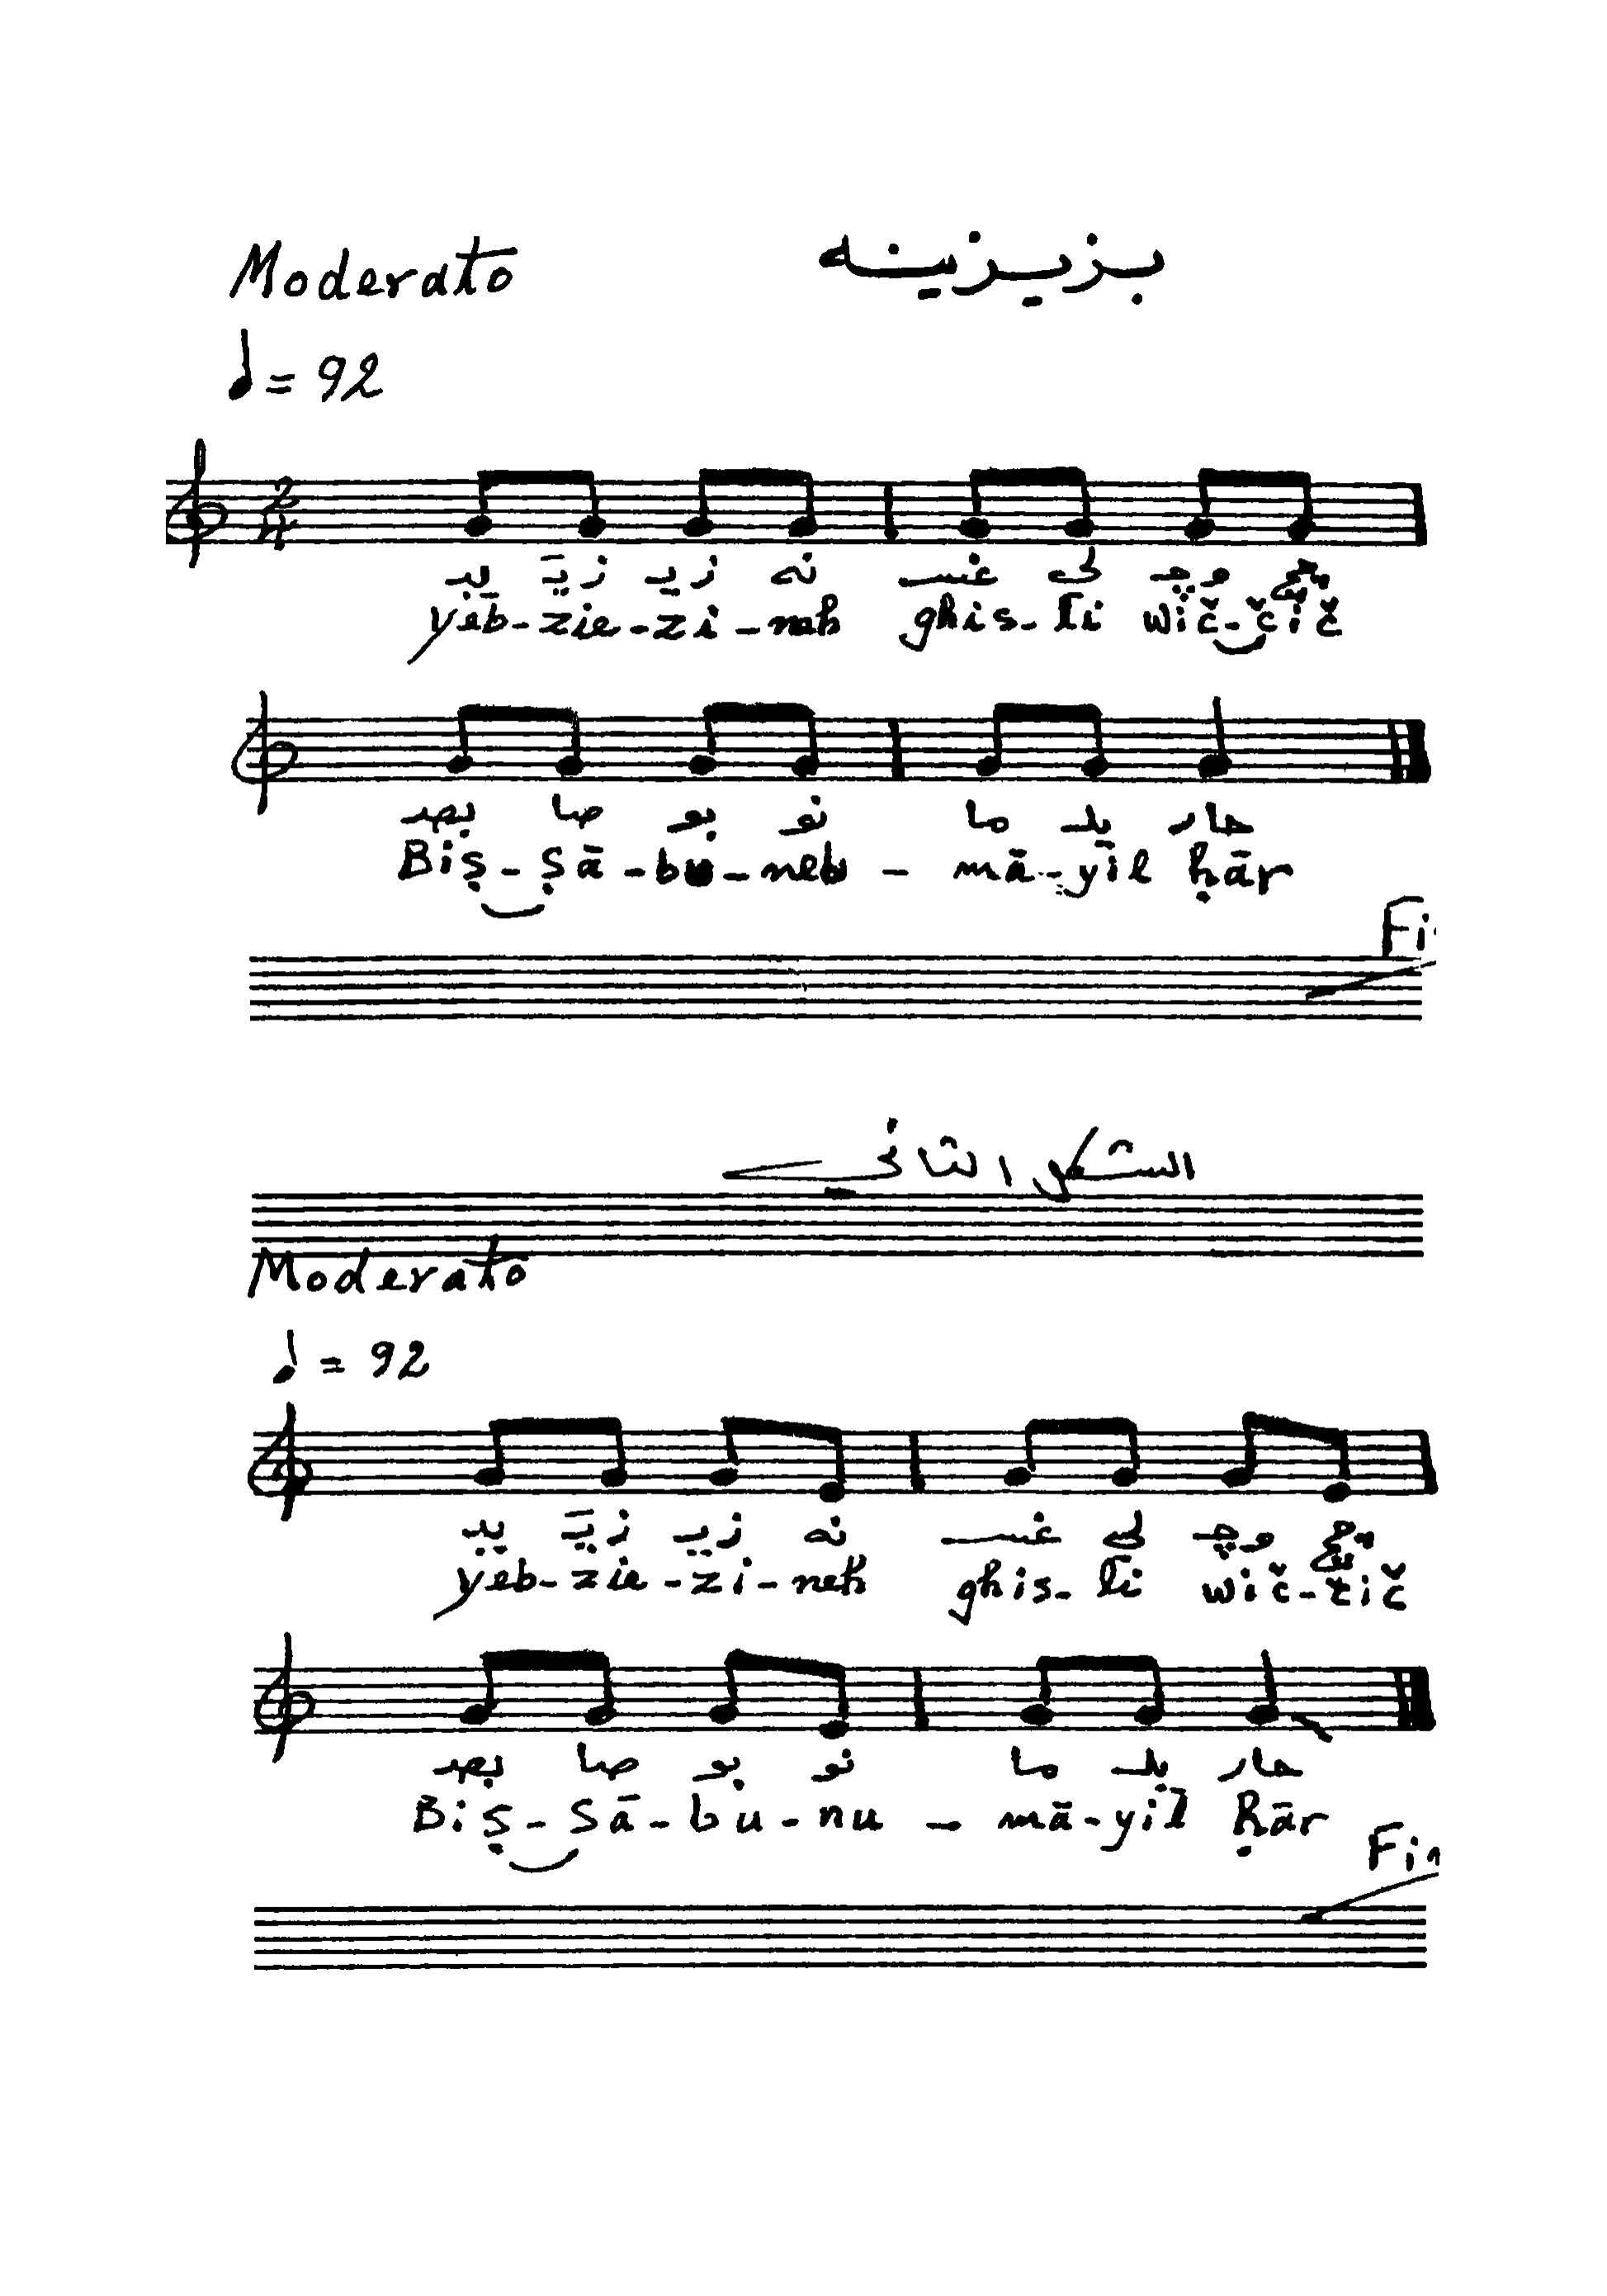 Moderato بزيزينه
♩ = 92
2/4
يبـ زيَـ زيـ نه غسـ لي وچـ چچ
yēb-zie-zi-neh ghis-li wič-čič
بصـ صا بو نو ما يلـ حار
Biṣ-Ṣā-bu-neb-mā-yīl ḥār
الشكل الثاني
Moderato
♩ = 92
يبـ زيَـ زيـ نه غسـ لي وچـ
yeb-zie-zi-neh ghis-li wič-čič
بصـ صا بو نو ما يلـ حار
Biṣ-Sā-bu-nu-mā-yil ḥār